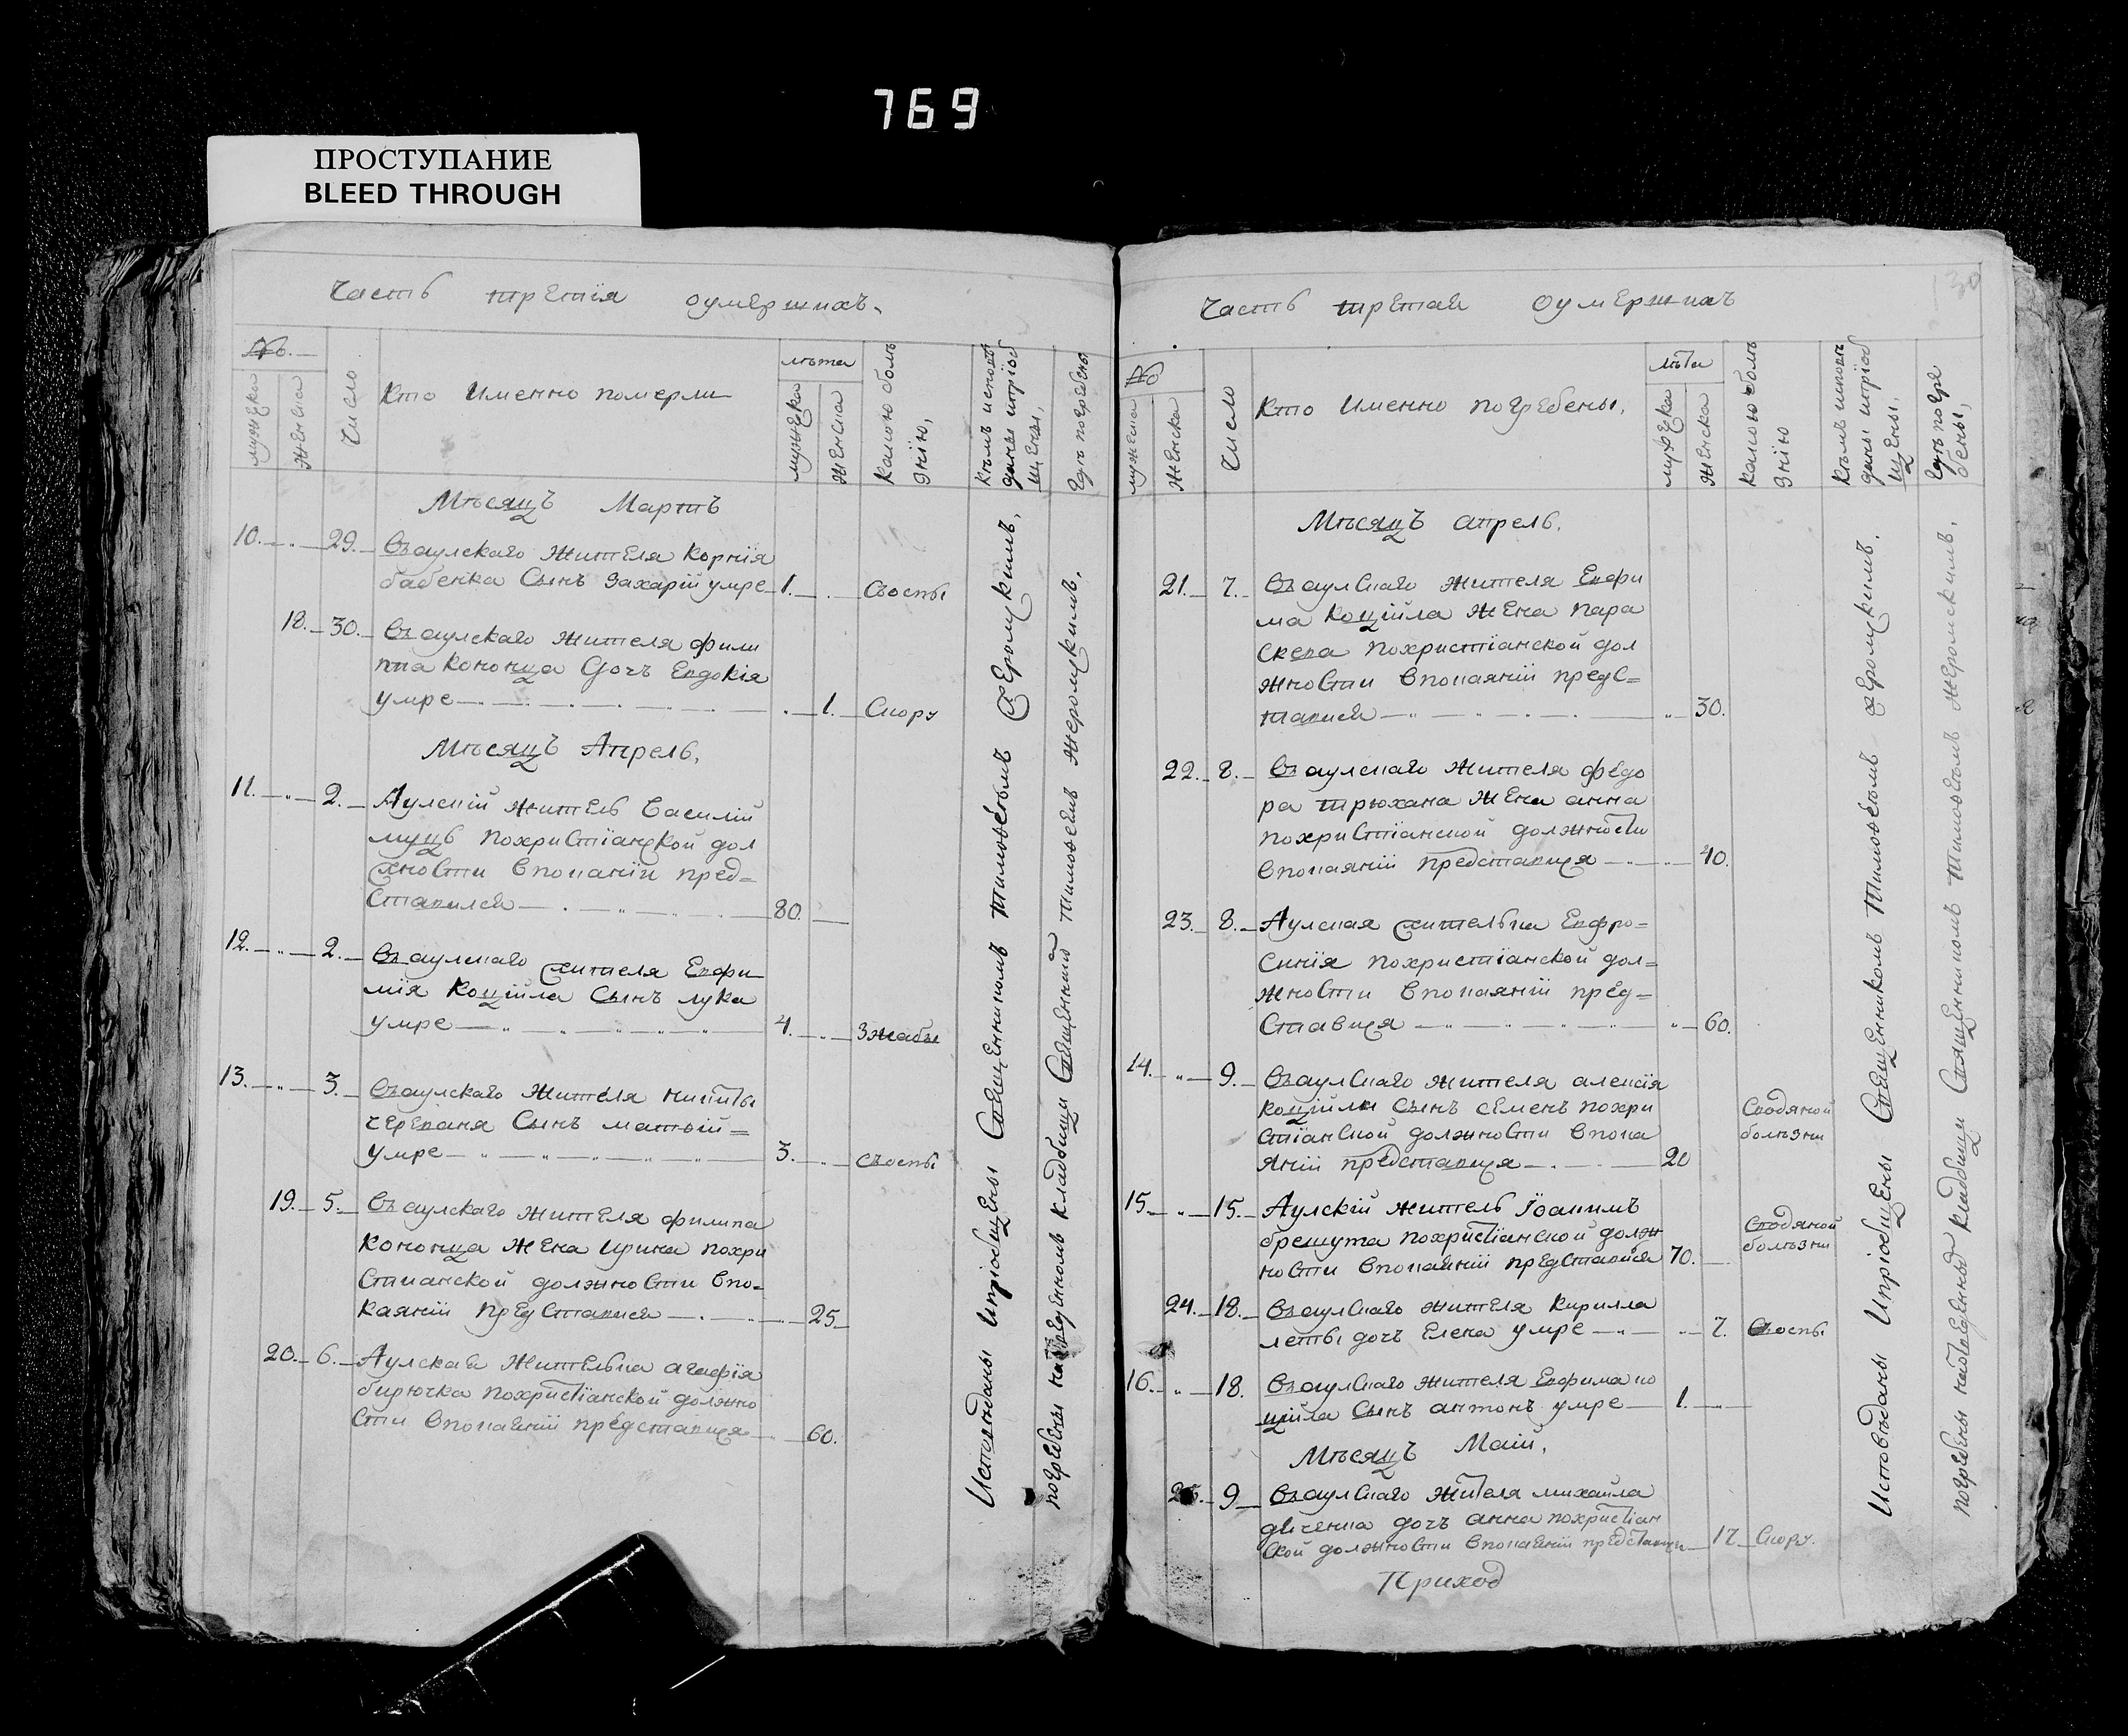 769
ПРОСТУПАНИЕ
BLEED THROUGH
Часть третія оумершихъ.
№.
мужеска
женска
Число
Кто Именно померли
лѣта
мужеска
женска
Какою болѣ
знію,
Кѣмъ исповѣ
даны ипріоб
щены,
Гдѣ погребены
Мѣсяцъ Мартъ
10. 29. Въаулскаго жителя Корнія
бабенка Сынъ Захарій умре 1. Съоспы
18. 30. Въаулскаго жителя фили
ппа кононца Дочь Евдокія
умре 1. Скору
Мѣсяцъ Апрель.
11. 2. Аулскій житель Василій
муць похристіанской дол
жности впоканіи пред=
ставился 80.
12. 2. Въаулскаго жителя Евфи
мія коційла Сынъ лука
умре 4. Зжабы
13. 3. Въаулскаго жителя никиты
черваня Сынъ матѳій=
умре 3. съоспы
19. 5. Въаулскаго жителя филипа
кононца жена ирина похри
стианской должности впо=
каяніи представися 25
20. 6. Аулская жителька агафія
бирючка похристіанской должно
сти впокаяніи представися 60.
Исповѣданы Ипріобщены Священникомъ Тимоѳеемъ Жеромскимъ.
погребены Священникомъ Тимоѳеемъ Жеромскимъ.
Часть третая оумершихъ
№
мужеска
женска
Число
Кто Именно погребены,
лѣта
мужеска
женска
Какою болѣ
знію
Кѣмъ исповѣ
даны ипріоб
щены,
Гдѣ погре
бены,
Мѣсяцъ апрель.
21. 7. Въаулскаго жителя Евфи
ма коційла жена пара
скева похристіанской дол
жности впокаяніи предс=
тавися 30.
22. 8. Въаулскаго жителя федо
ра трюхана жена анна
похристіанской должности
впокаяніи представися 40.
23. 8. Аулская жителька Евфро=
синія похристіанской дол=
жности впокаяніи пред=
ставися 60.
14. 9. Въаулскаго жителя алексія
коційла сынъ семенъ похри
стіанской должности впока
яніи представися 20
Сводяной
болѣзни
15. 15. Аулскій житель Іоакимъ
брешута похристіанской долж
ности впокаяніи представися 70.
Сводяной
болѣзни
24. 18. Въаулскаго жителя Кирилла
леты дочь Елена умре 7. Соспы
16. 18. Въаулскаго жителя Евфима ко
ційла сынъ антонъ умре 1.
Мѣсяцъ Маій.
25. 9 Въаулскаго жителя михайла
дочь анна похристіан
ской должности впокаяніи представися 17 Скору.
Исповѣданы Ипріобщены Священникомъ Тимоѳеемъ Жеромскимъ.
погребены Священникомъ Тимоѳеемъ Жеромскимъ.
Приход